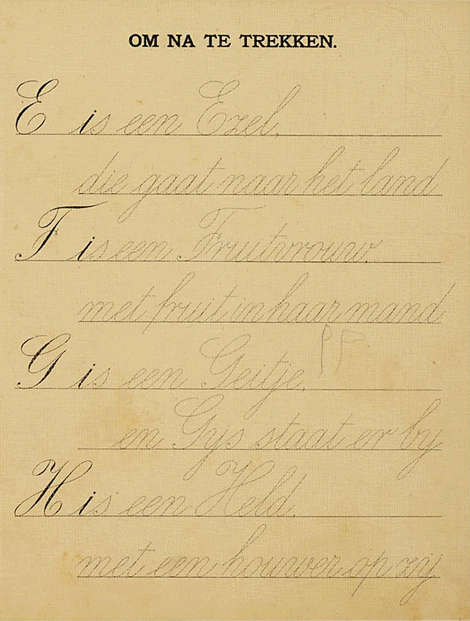 OM NA TE TREKKEN.
E is een Ezel,
die gaat naar het land
F is een Fruitvrouw
met fruit in haar mand
PP
G is een Geitje,
en Gys staat er by
H is een Held,
met een houwer op zy